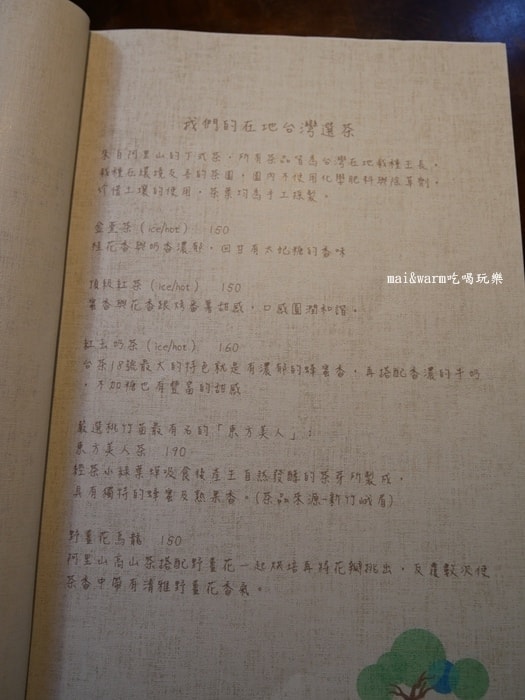 我們的在地台灣選茶
來自阿里山的下式茶，所有茶品皆為台灣在地栽種生長，
栽種在環境友善的茶園，園內不使用化學肥料與除草劑，
珍惜土壤的使用，茶葉均為手工採製。
金萱茶 (ice/hot) 150
桂花香與奶香濃郁，回甘有太妃糖的香味
頂級紅茶 (ice/hot) 150
蜜香與花香跟烤番薯甜感，口感圓潤和諧。
紅玉奶茶 (ice/hot) 160
台茶18號最大的特色就是有濃郁的蜂蜜香，再搭配香濃的牛奶
，不加糖也有豐富的甜感
嚴選桃竹苗最有名的「東方美人」：
東方美人茶 190
經茶小綠葉蟬吸食後產生自然發酵的茶芽所製成，
具有獨特的蜂蜜及熟果香。(茶品來源-新竹峨眉)
野薑花烏龍 150
阿里山高山茶搭配野薑花一起烘焙再將花瓣挑出，反覆數次使
茶香中帶有清雅野薑花香氣。
mai&warm吃喝玩樂